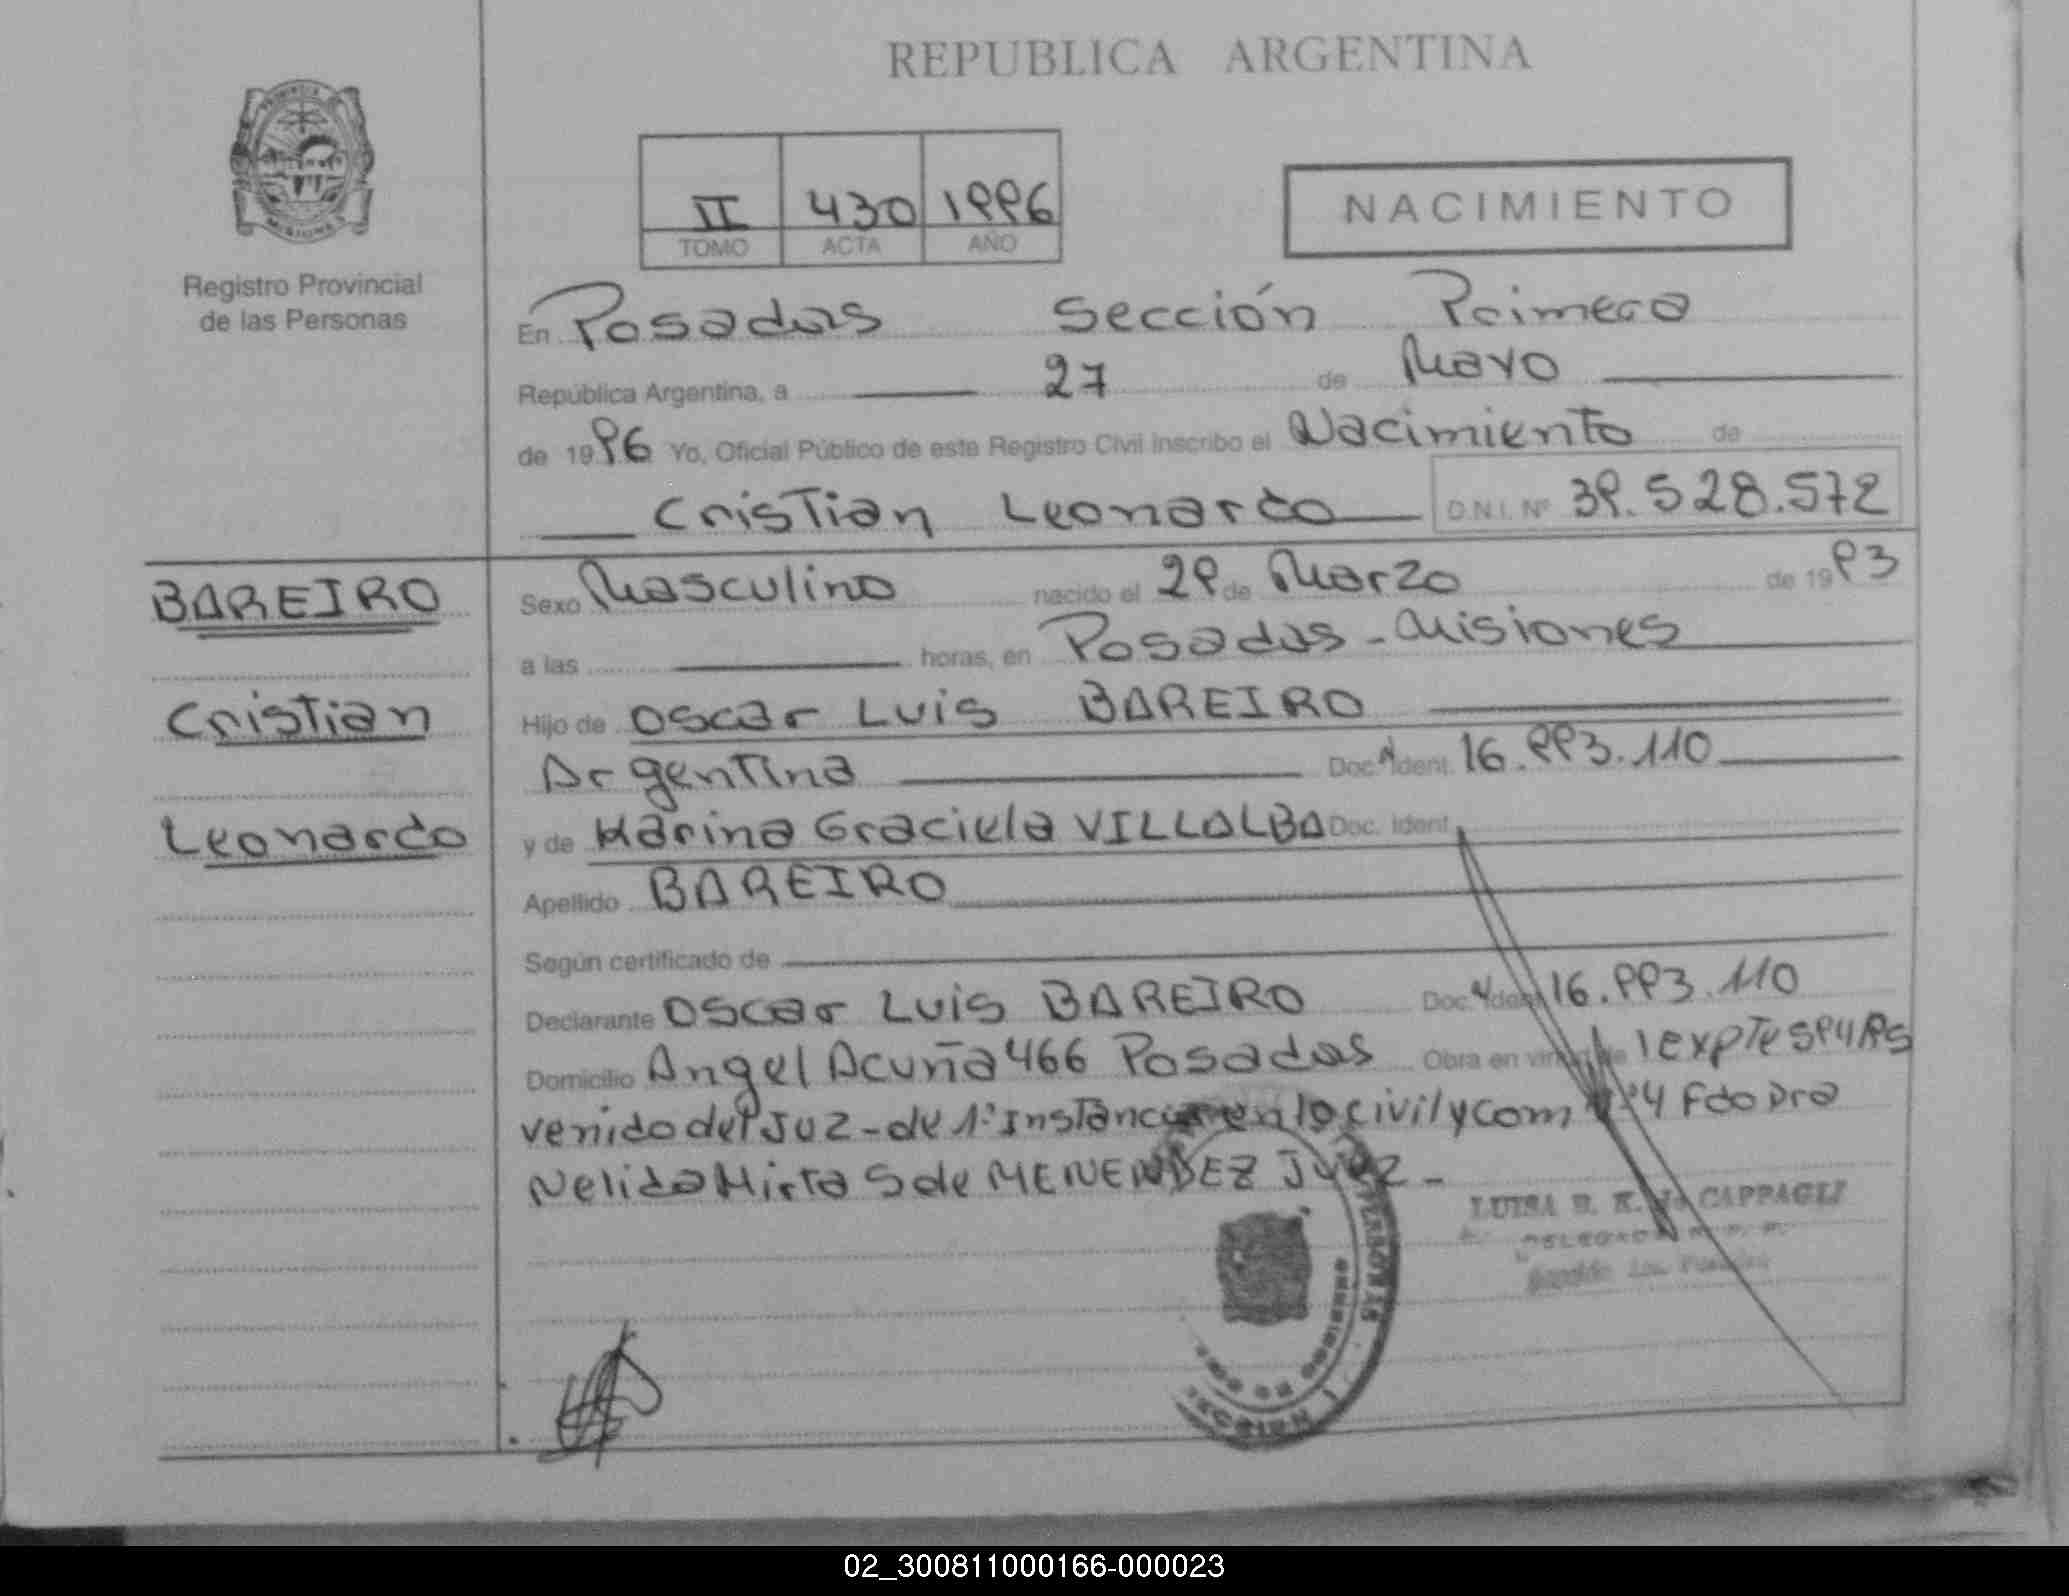 REPUBLICA ARGENTINA
II 430 1996
TOMO ACTA AÑO
NACIMIENTO
Registro Provincial
de las Personas
En Posadas Sección Primera
República Argentina, a 27 de Mayo
de 1996 Yo, Oficial Público de este Registro Civil inscribo el Nacimiento de
Cristian Leonardo D.N.I. Nº 39.528.572
BAREIRO
Cristian
Leonardo
Sexo Masculino nacido el 29 de Marzo de 1993
a las horas, en Posadas - Misiones
Hijo de Oscar Luis BAREIRO
Argentina Doc. Ident. 16.993.110
y de Marina Graciela VILLALBA Doc. Ident.
Apellido BAREIRO
Según certificado de
Declarante Oscar Luis BAREIRO Doc. Ident. 16.993.110
Domicilio Angel Acuña 466 Posadas Obra en virtud de
venido del Juz - de 1º Instancia en lo civil y com Nº4 Fdo Dra
Nelida Mirta S de MENENDEZ Juez -
LUISA B. K. de CAPPAGLI
SECCION 1
02_300811000166-000023